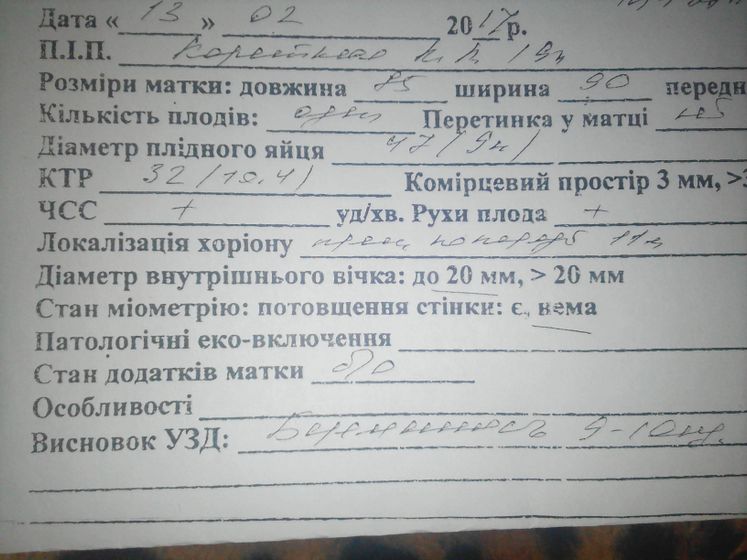 Дата « 13 » 02 2017 р.
П.І.П.
Розміри матки: довжина 85 ширина 90 передн
Кількість плодів: один Перетинка у матці
Діаметр плідного яйця 47 (9н)
КТР 32 (10.4) Комірцевий простір 3 мм, >3
ЧСС + уд/хв. Рухи плода +
Локалізація хоріону
Діаметр внутрішнього вічка: до 20 мм, > 20 мм
Стан міометрію: потовщення стінки: є, нема
Патологічні еко-включення
Стан додатків матки б/о
Особливості
Висновок УЗД: Беременность 9-10нд.